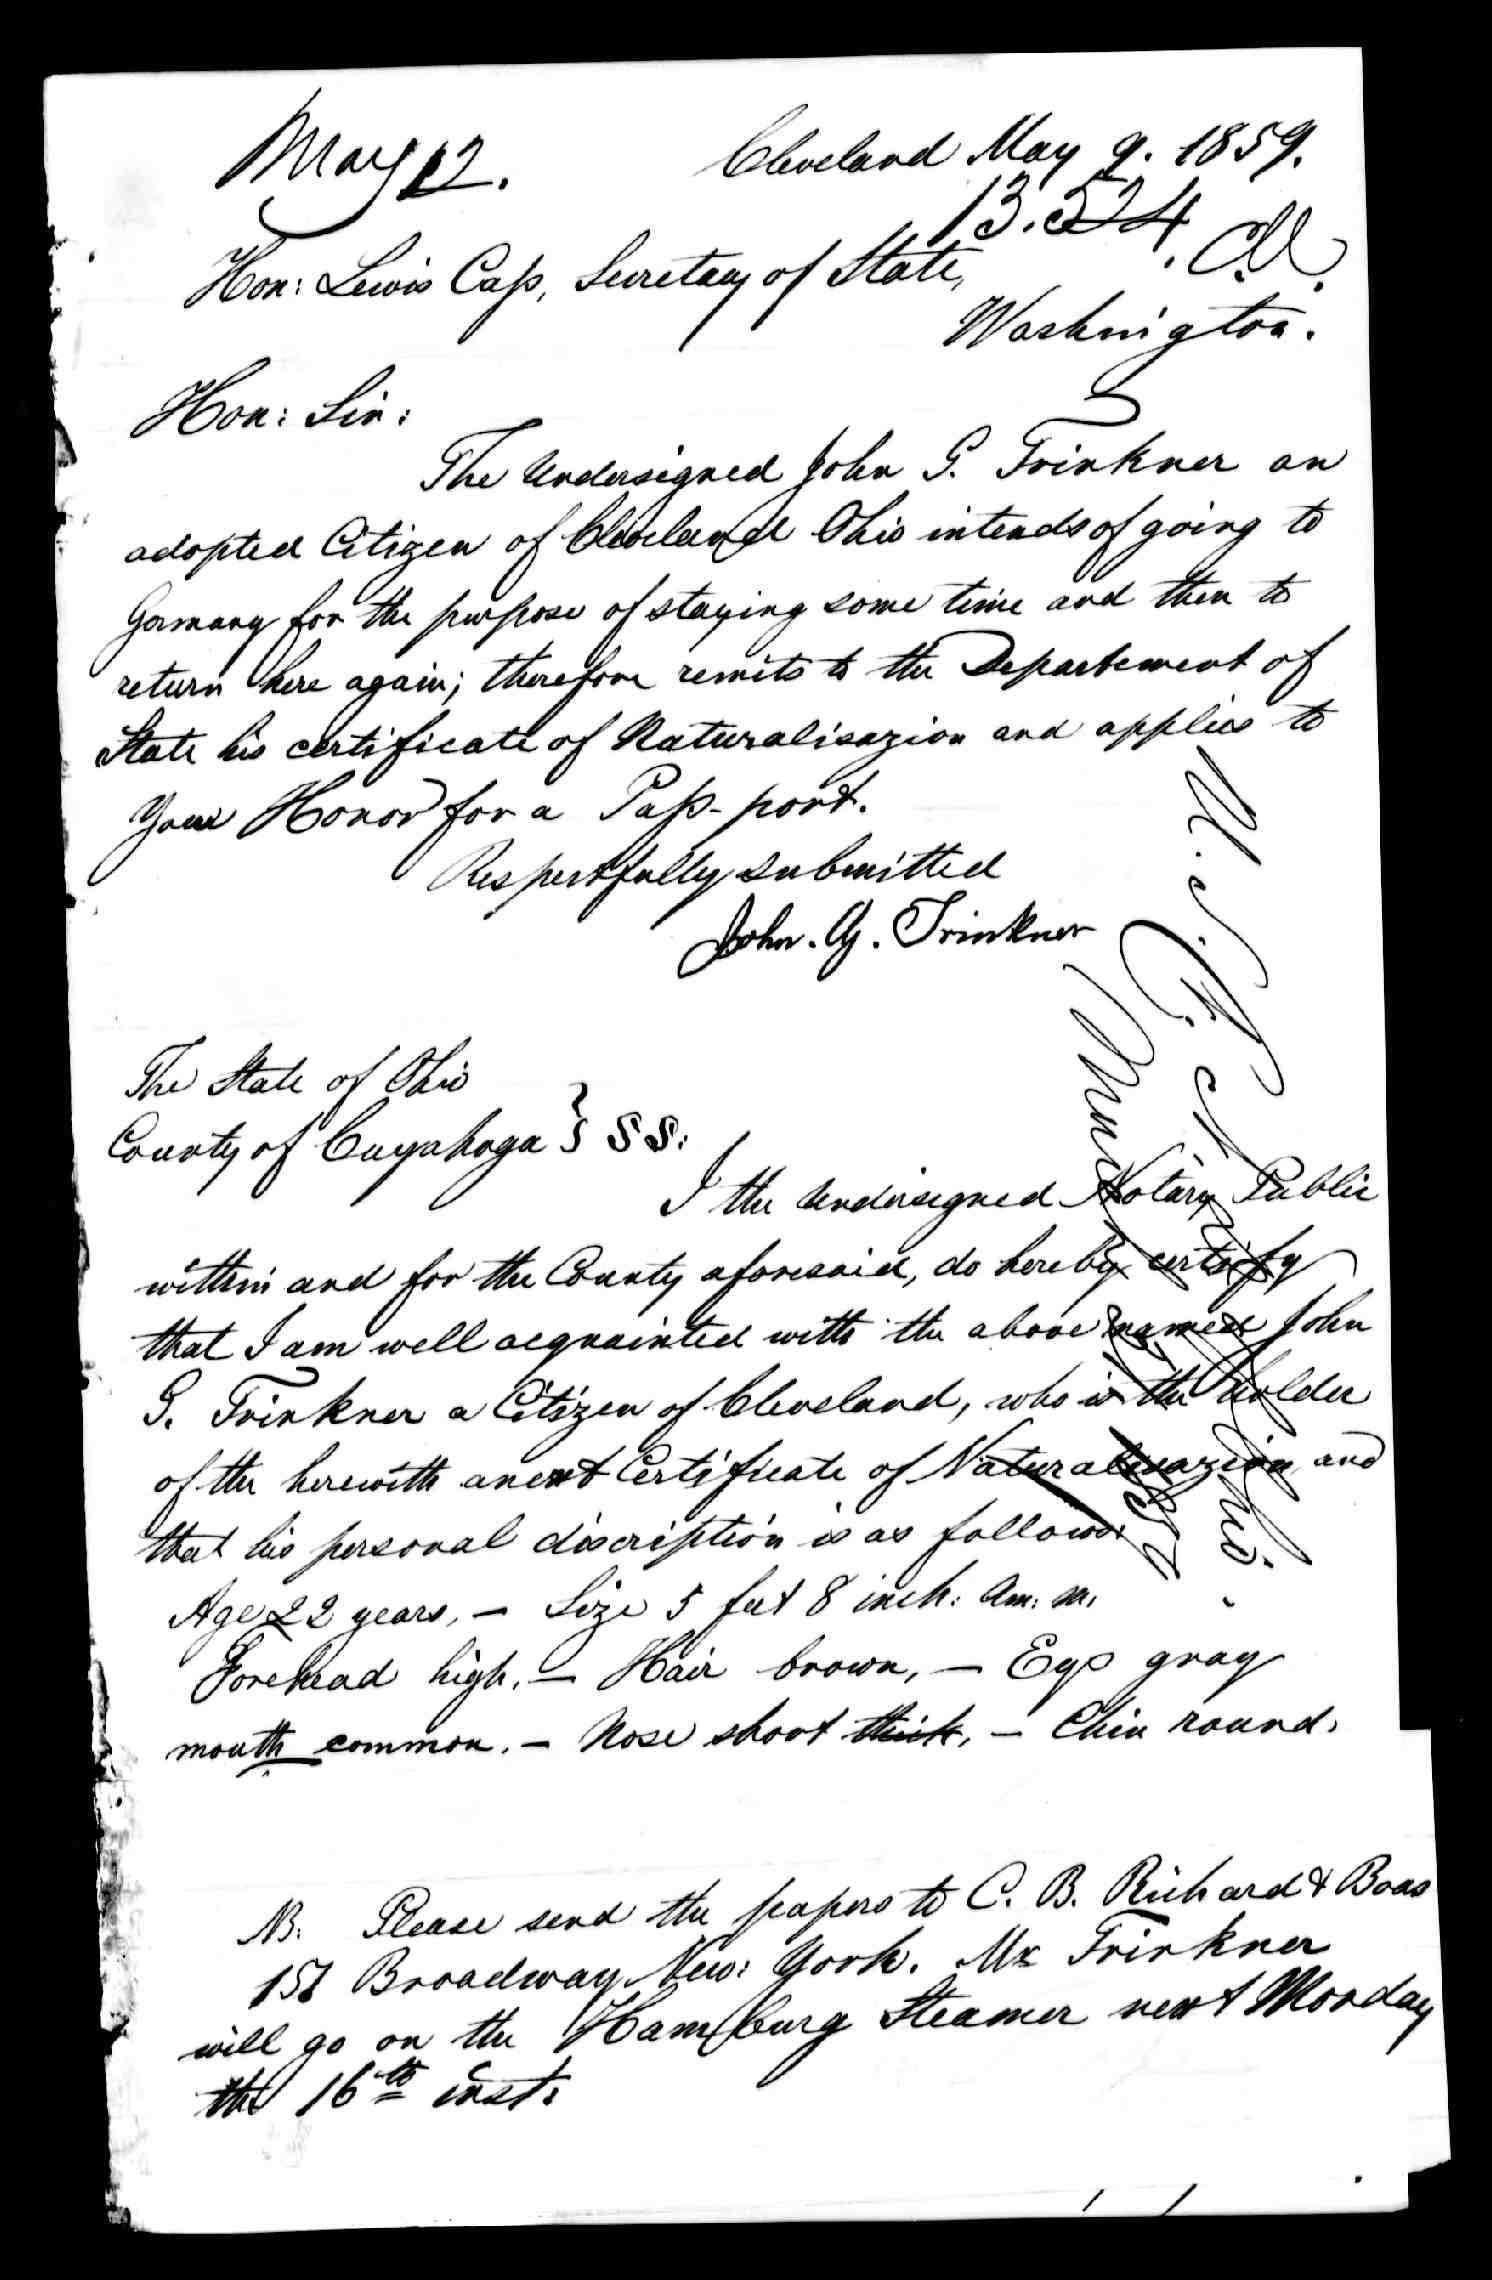 May 12.
Cleveland May 9. 1859.
13.524
Hon: Lewis Caſs, Secretary of State,
Washington.
Hon: Sir:
The Undersigned John G. Trinkner an
adopted Citizen of Cleveland Ohio intends of going to
Germany for the purpose of staying some time and then to
return here again; therefore remits to the Departement of
State his certificate of Naturalisazion and applies to
Your Honor for a Paſs-port.
Respectfully submitted
John. G. Trinkner
The State of Ohio
County of Cuyahoga } SS:
I the Undersigned Notary Public
within and for the County aforesaid, do hereby certify
that I am well acquainted with the above named John
G. Trinkner a Citizen of Cleveland, who is the holder
of the herewith anext Certificate of Naturalisazion and
that his personal discription is as follows:
Age 22 years, — Size 5 feet 8 inch: Am: m.
Forehead high, — Hair brown, — Eys gray
mouth common. — Nose short thick, — Chin round.
NB. Please send the papers to C. B. Richard & Boas
157 Broadway New: York. Mr Trinkner
will go on the Hamburg Steamer next Monday
the 16th inst: